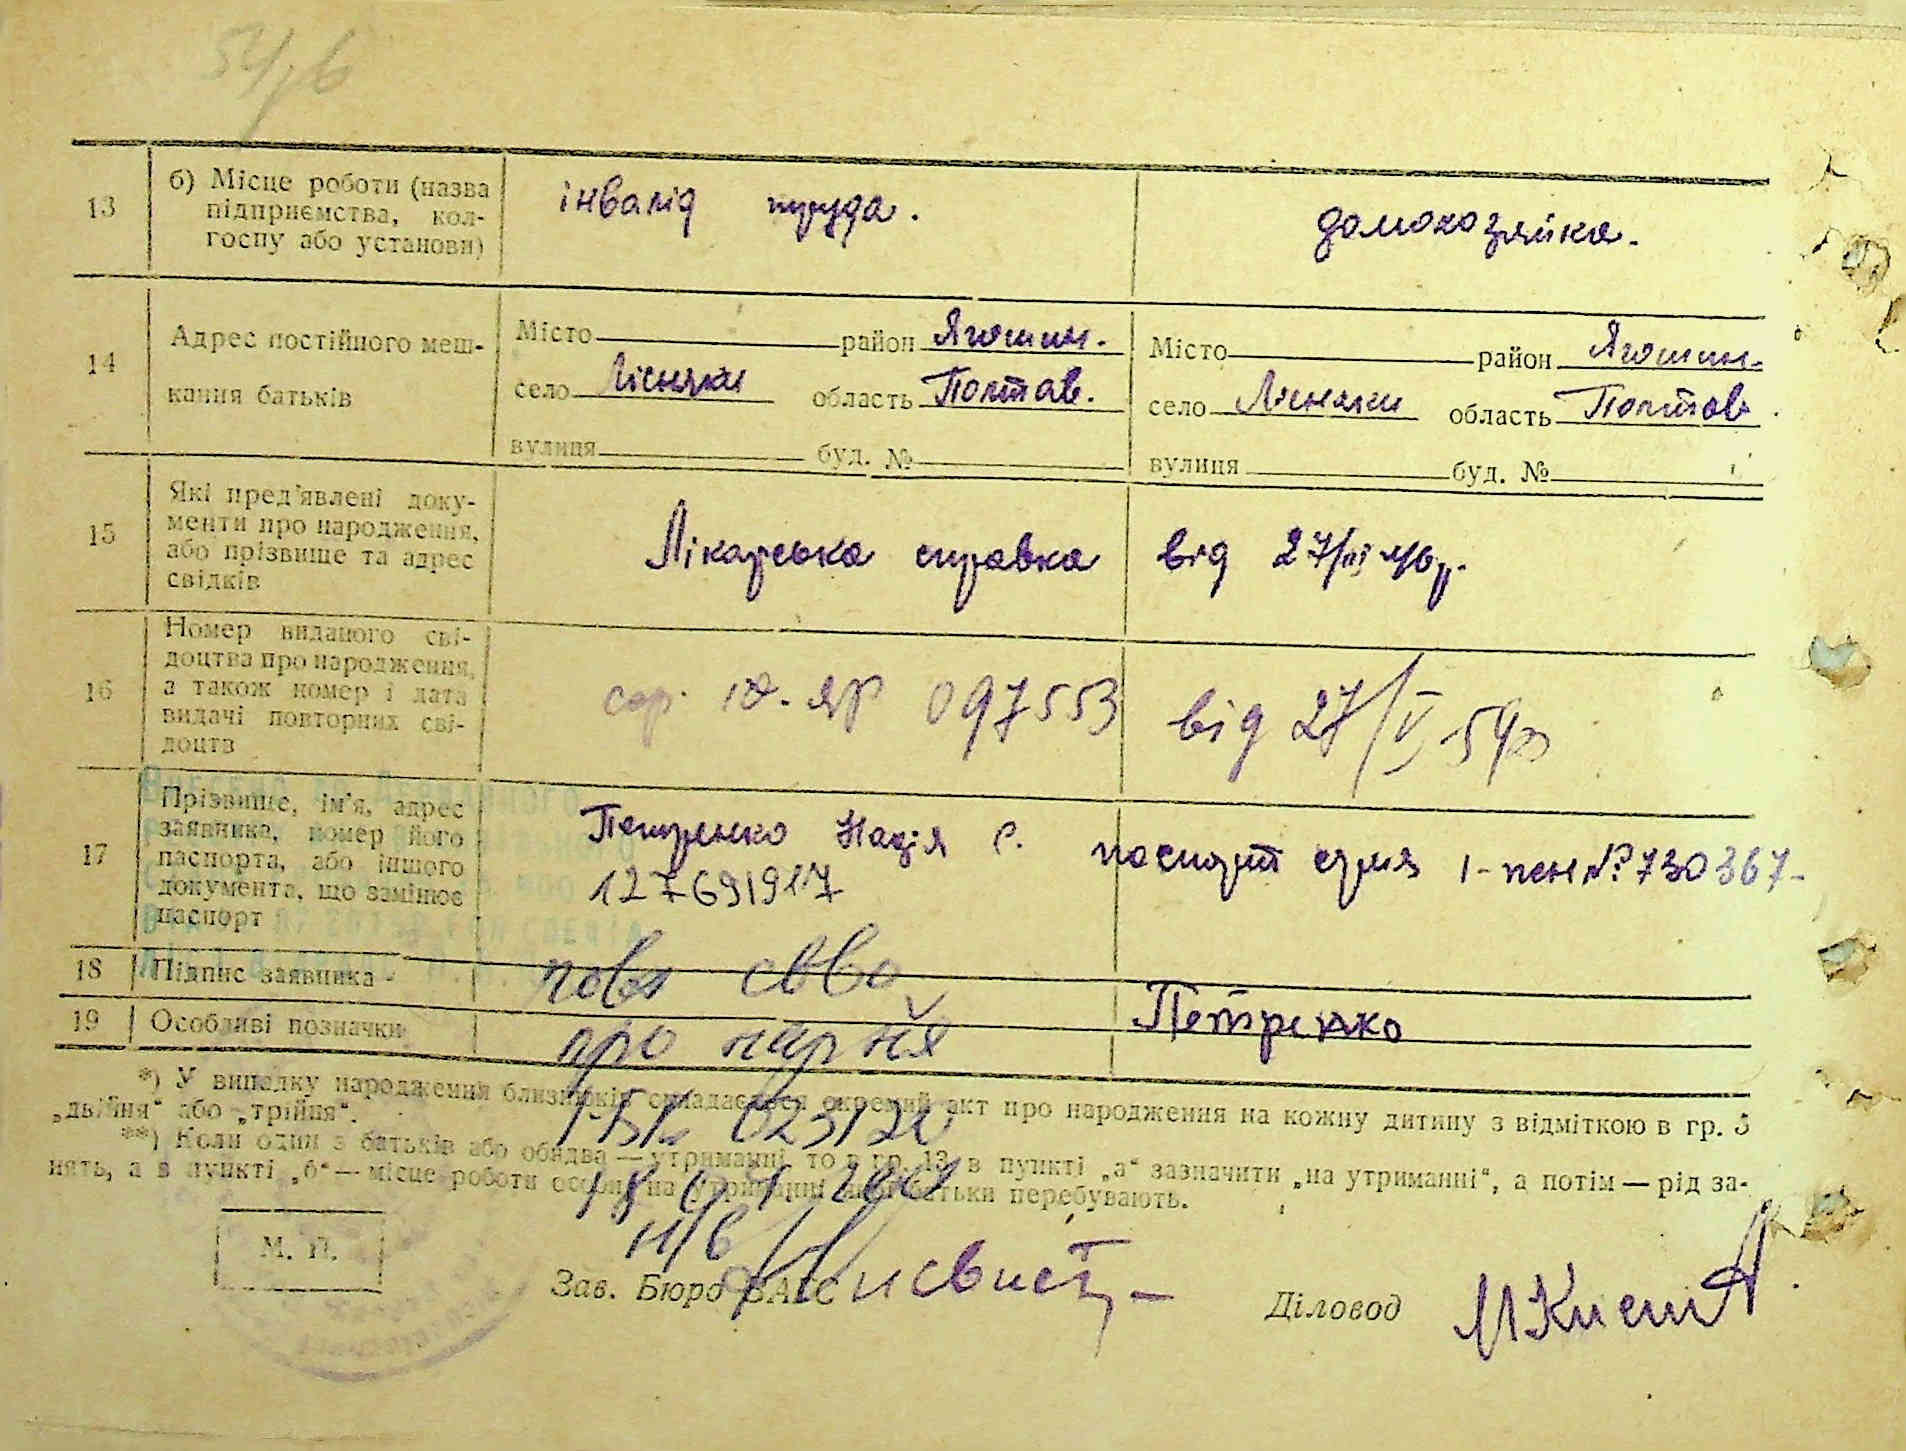 54/6
13
б) Місце роботи (назва
підприємства, кол-
госпу або установи)
інвалід труда.
домохозяйка.
14
Адрес постійного меш-
кання батьків
Місто район Ягошин.
село Лісняки область Полтав.
вулиця буд. №
Місто район Ягошин.
село Лісняки область Полтав
вулиця буд. №
15
Які пред'явлені доку-
менти про народження,
або прізвище та адрес
свідків
Лікарська справка від 27/
16
Номер виданого сві-
доцтва про народження,
а також номер і дата
видачі повторних сві-
доцтв
сер. ЯР 097553 від 27/V 54р
17
Прізвище, ім'я, адрес
заявника, номер його
паспорта, або іншого
документа, що замінює
паспорт
Петренко Надія С. паспорт серия 1-пен № 730367-
127691917
18
Підпис заявника
повт св-во
19
Особливі позначки
про нар-ня
Петренко
*) У випадку народження близнюків складається окремий акт про народження на кожну дитину з відміткою в гр. 5
„двійня“ або „трійня“.
**) Коли один з батьків або обидва — утриманці, то в гр. 13 в пункті „а“ зазначити „на утриманні“, а потім — рід за-
нять, а в пункті „б“ — місце роботи особи, на утриманні якої батьки перебувають.
М. П.
Зав. Бюро ЗАГС
Діловод